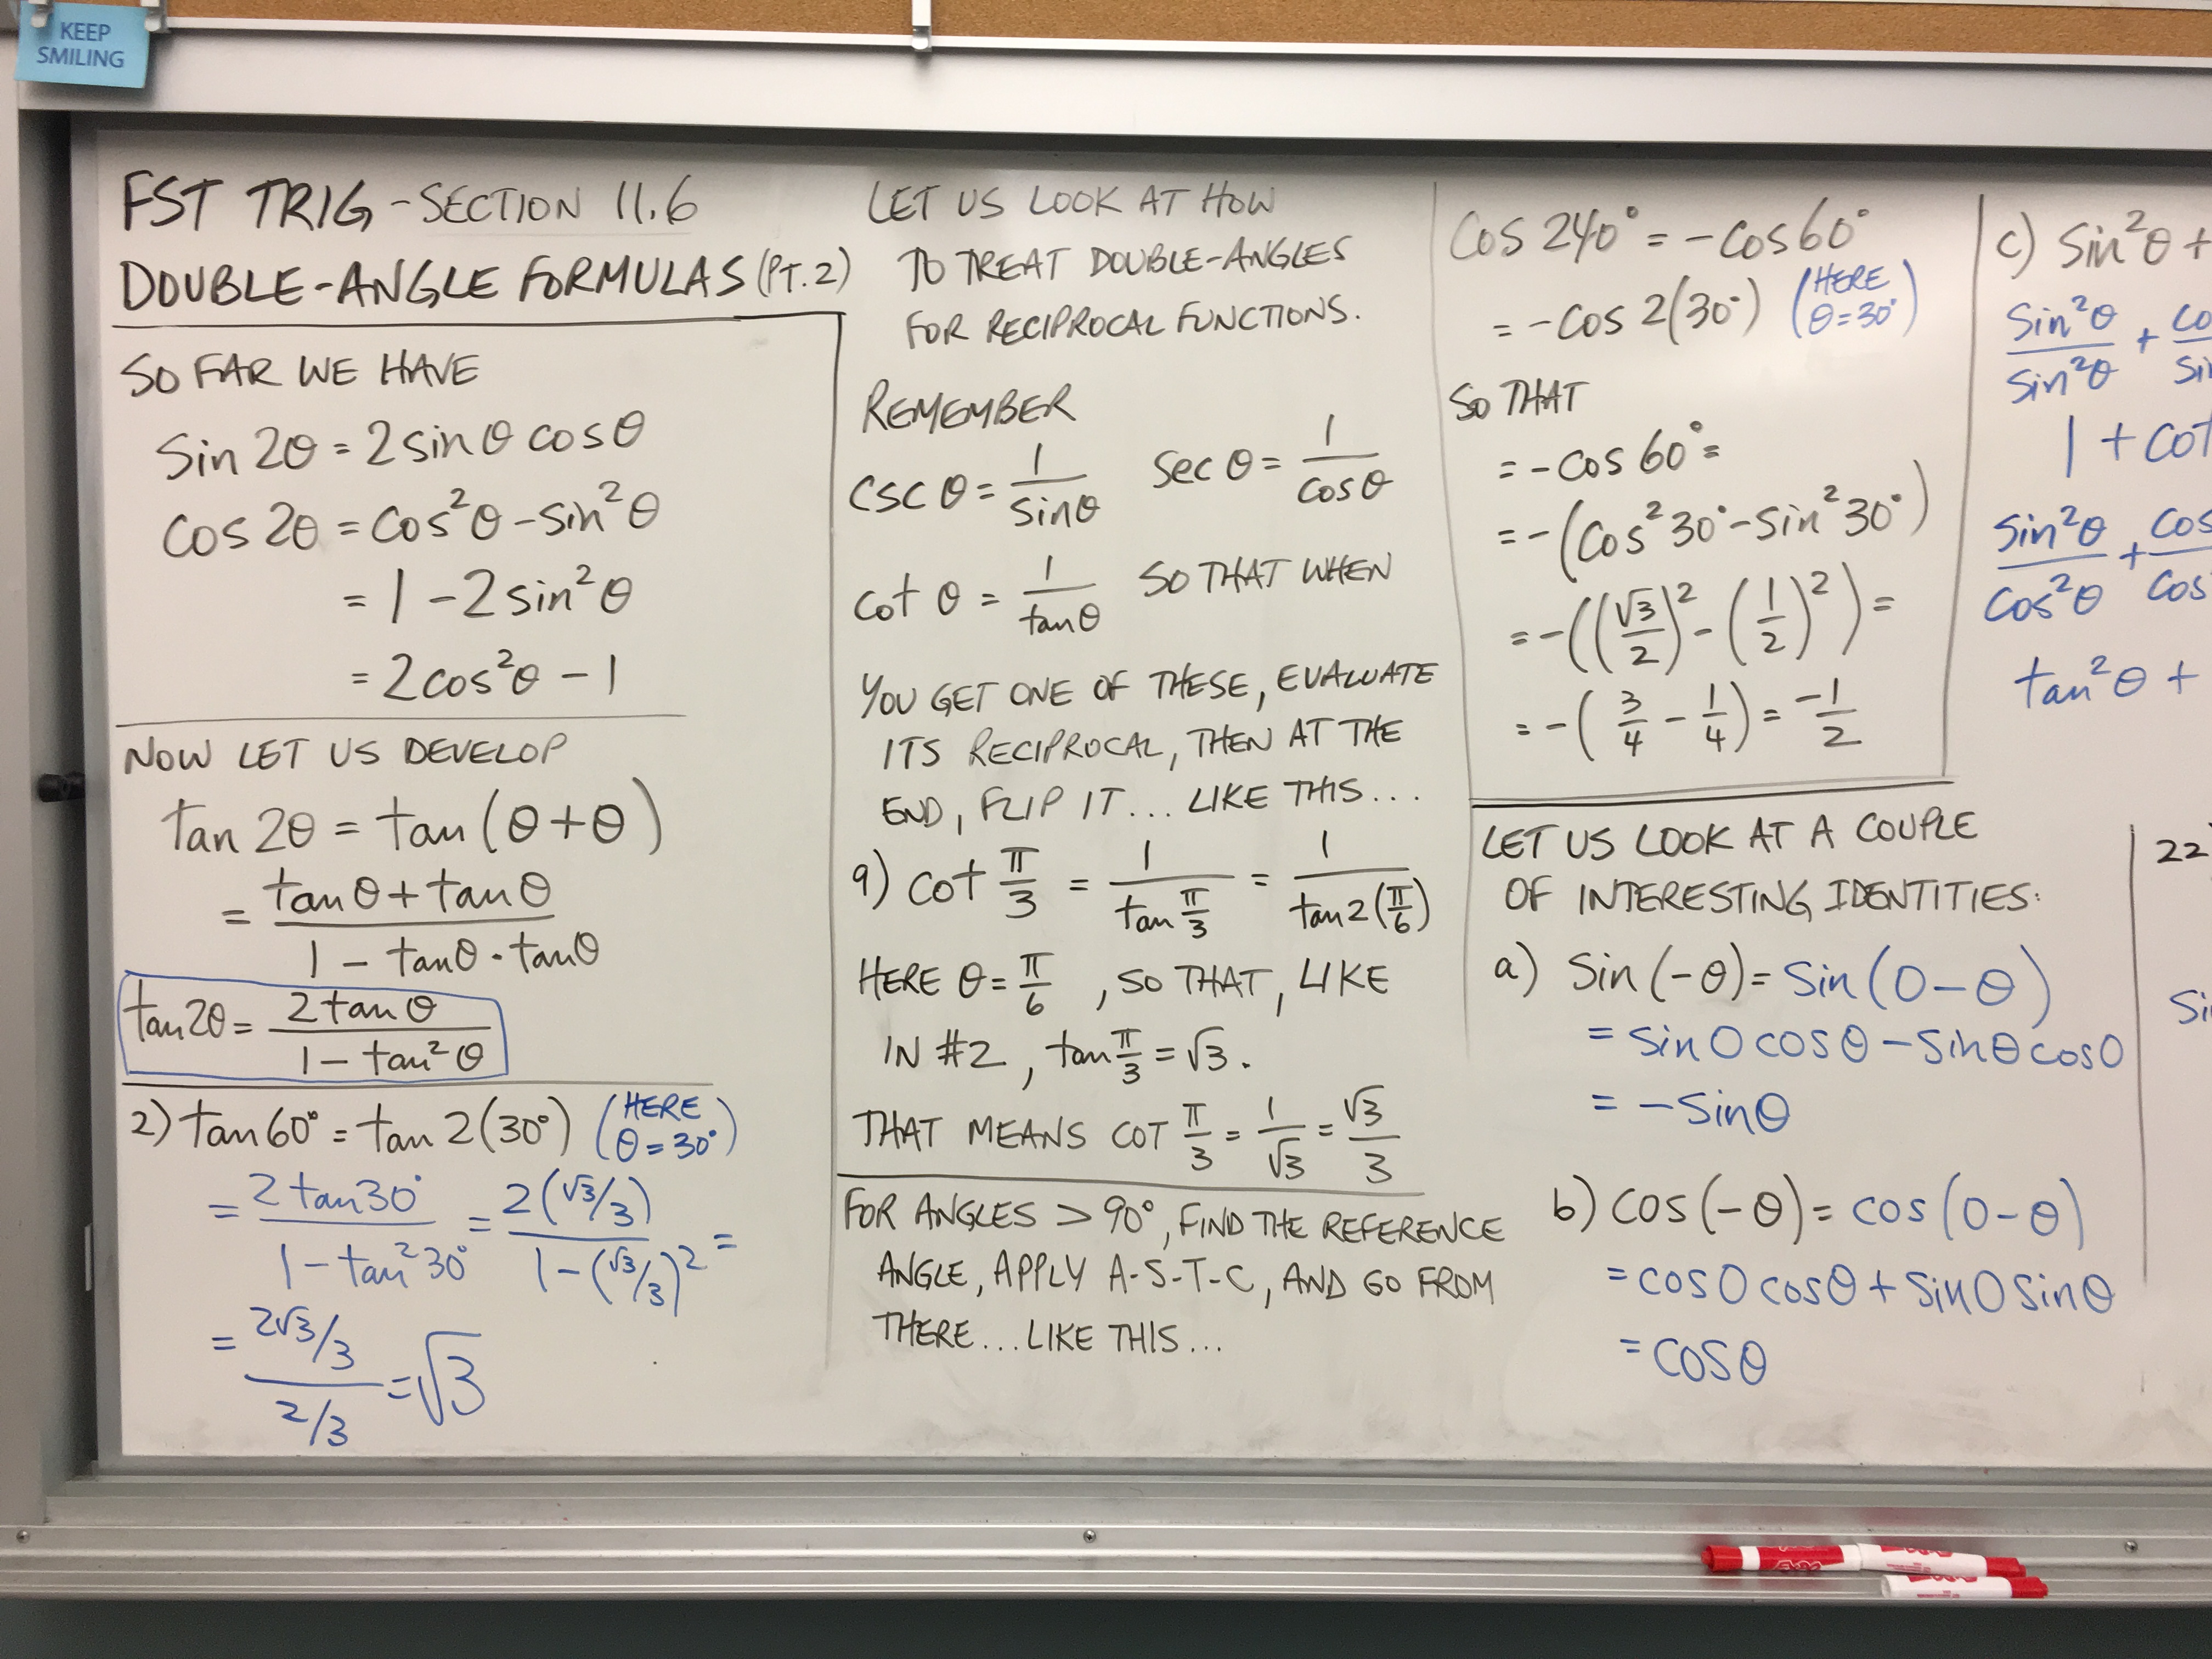 KEEP
SMILING
FST TRIG - SECTION 11.6
DOUBLE-ANGLE FORMULAS (PT. 2)
SO FAR WE HAVE
sin 2θ = 2 sin θ cos θ
cos 2θ = cos²θ - sin²θ
= 1 - 2 sin²θ
= 2 cos²θ - 1
NOW LET US DEVELOP
tan 2θ = tan (θ + θ)
= (tan θ + tan θ) / (1 - tan θ · tan θ)
tan 2θ = 2 tan θ / (1 - tan² θ)
2) tan 60° = tan 2(30°) (HERE θ = 30°)
= 2 tan 30° / (1 - tan² 30°) = 2(√3/3) / (1 - (√3/3)²) =
= (2√3/3) / (2/3) = √3
LET US LOOK AT HOW
TO TREAT DOUBLE-ANGLES
FOR RECIPROCAL FUNCTIONS.
REMEMBER
csc θ = 1/sin θ sec θ = 1/cos θ
cot θ = 1/tan θ SO THAT WHEN
YOU GET ONE OF THESE, EVALUATE
ITS RECIPROCAL, THEN AT THE
END, FLIP IT... LIKE THIS...
9) cot π/3 = 1/(tan π/3) = 1/(tan 2(π/6))
HERE θ = π/6, SO THAT, LIKE
IN #2, tan π/3 = √3.
THAT MEANS COT π/3 = 1/√3 = √3/3
FOR ANGLES > 90°, FIND THE REFERENCE
ANGLE, APPLY A-S-T-C, AND GO FROM
THERE... LIKE THIS...
cos 240° = - cos 60°
= - cos 2(30°) (HERE θ = 30°)
SO THAT
= - cos 60° =
= -(cos² 30° - sin² 30°)
= -((√3/2)² - (1/2)²) =
= -(3/4 - 1/4) = -1/2
LET US LOOK AT A COUPLE
OF INTERESTING IDENTITIES:
a) sin (-θ) = sin (0 - θ)
= sin 0 cos θ - sin θ cos 0
= - sin θ
b) cos (-θ) = cos (0 - θ)
= cos 0 cos θ + sin 0 sin θ
= cos θ
c) sin²θ +
sin²θ/sin²θ + co/si
1 + cot
sin²θ/cos²θ + cos/cos
tan²θ +
22
si